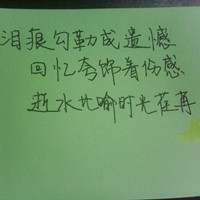 泪痕勾勒成遗憾
回忆夸饰着伤感
逝水比喻时光荏苒